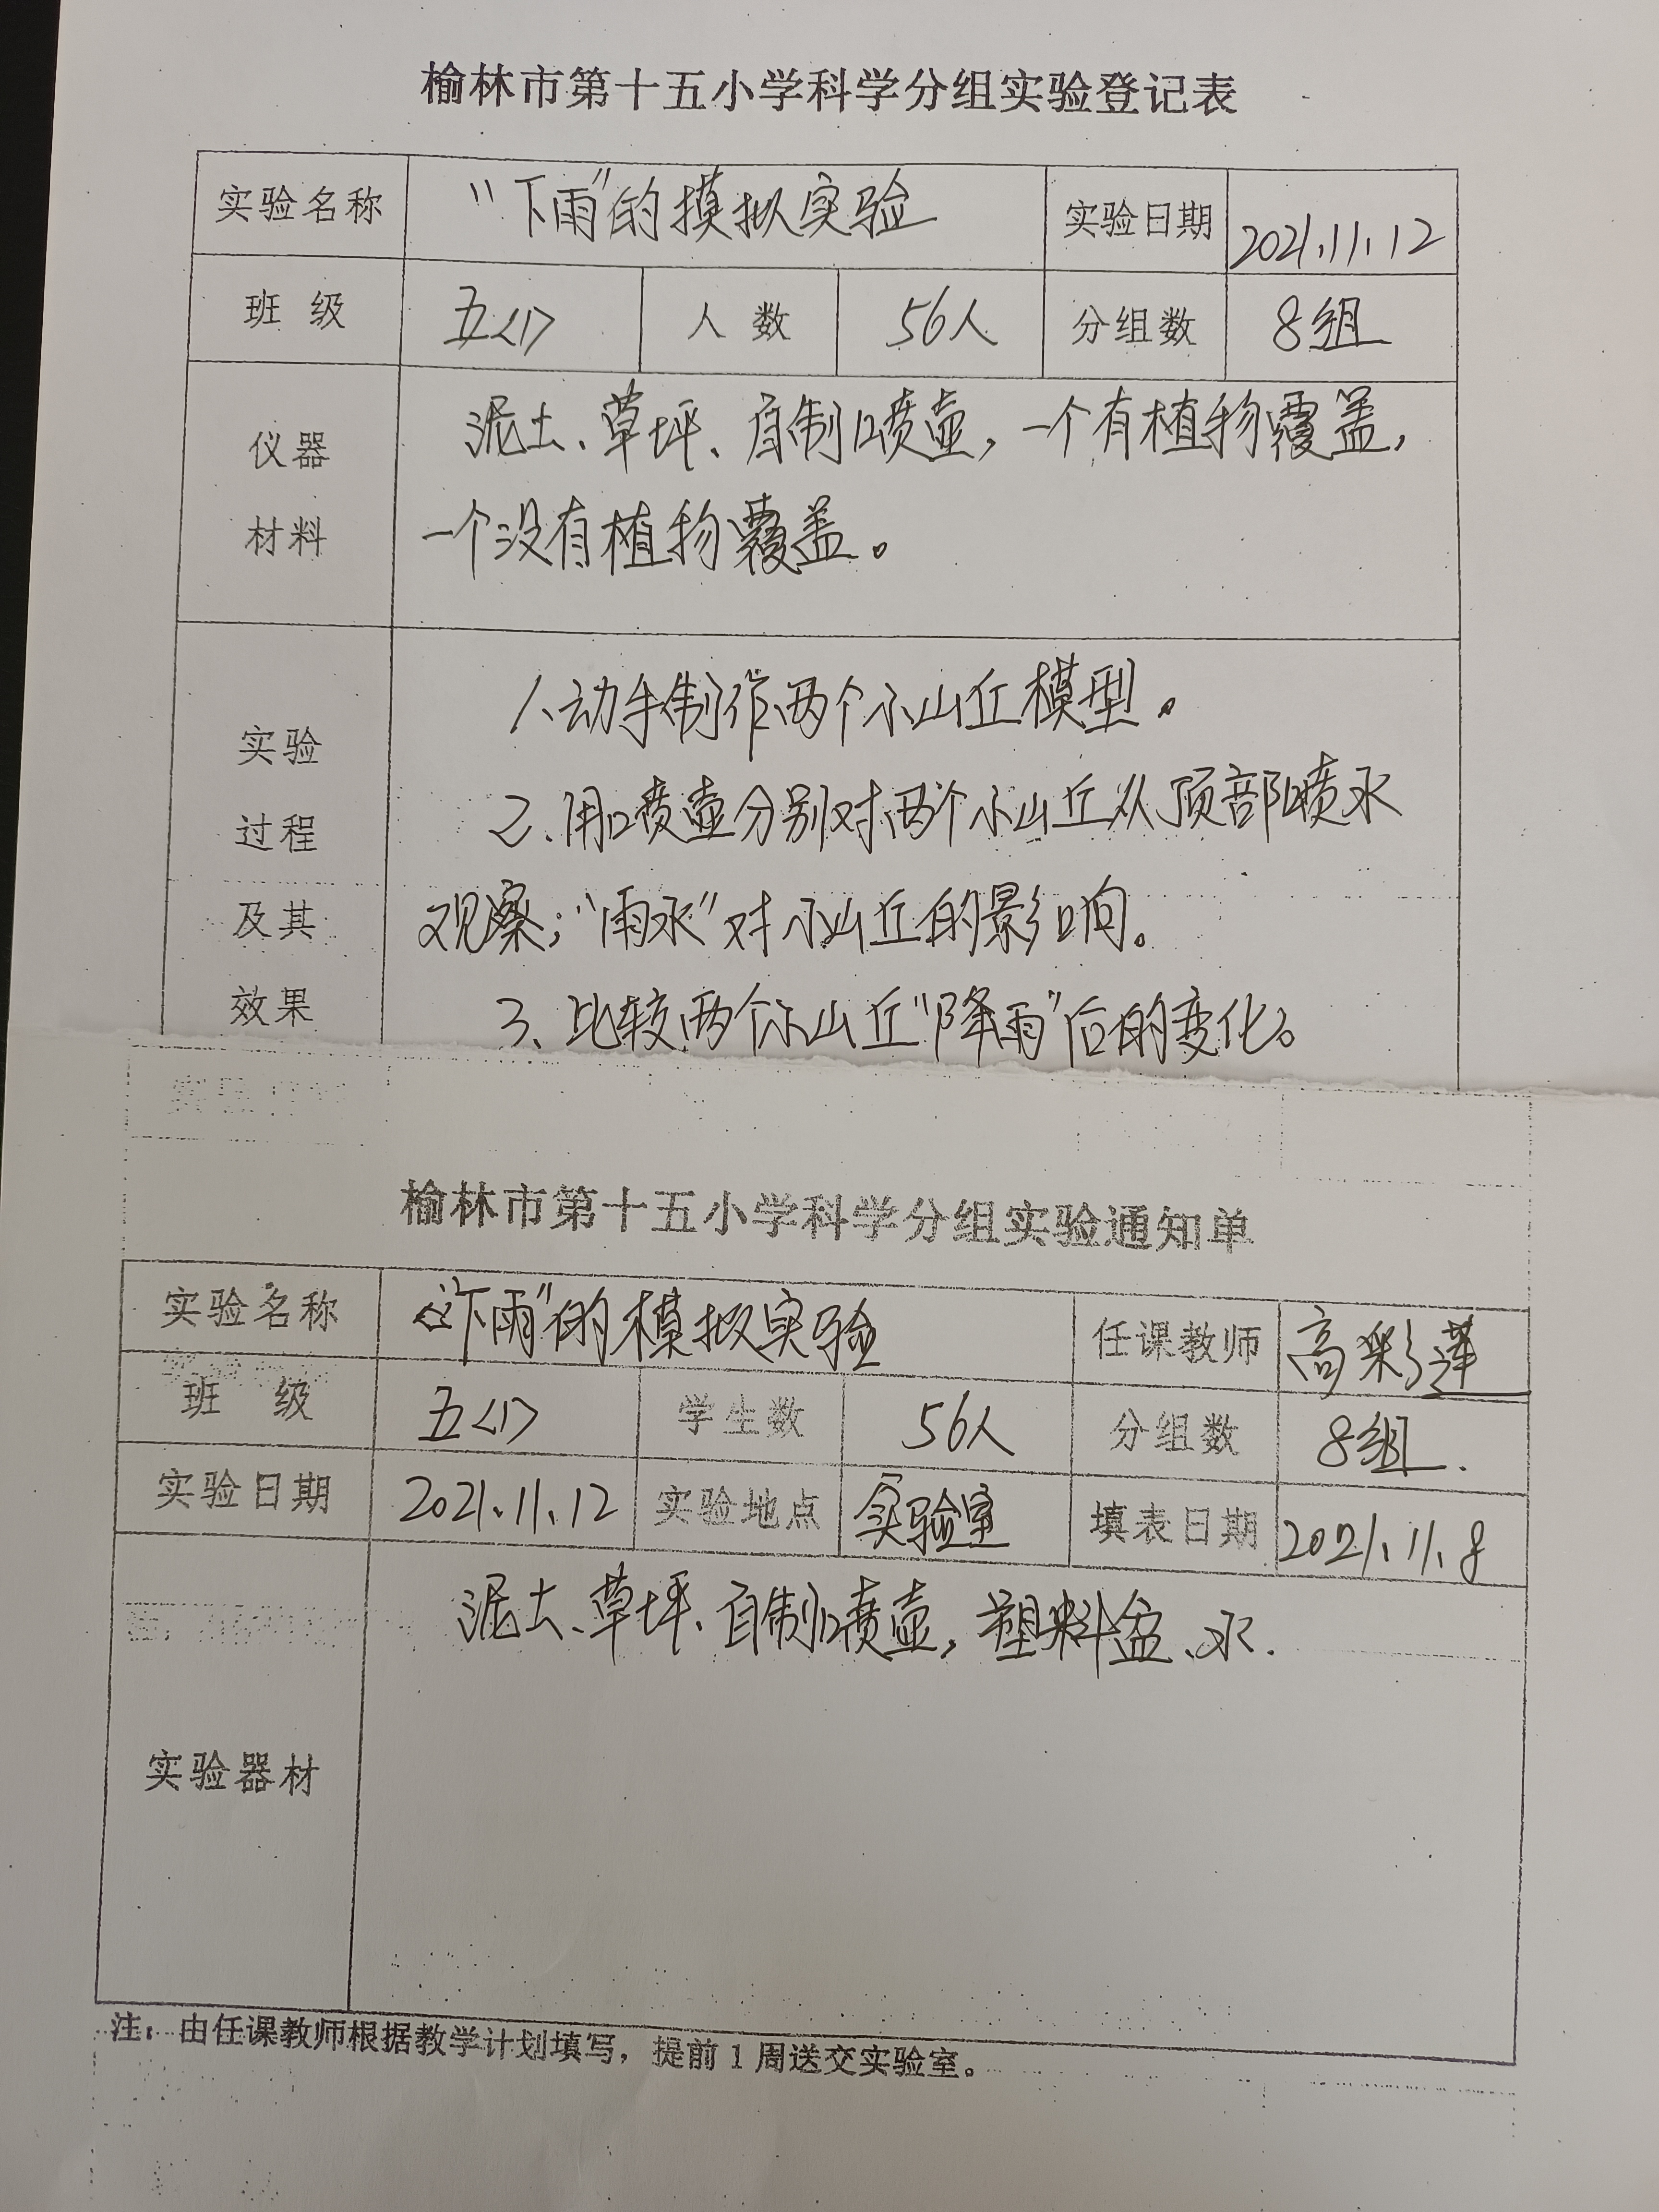 榆林市第十五小学科学分组实验登记表
实验名称 “下雨”的摸拟实验 实验日期 2021.11.12
班级 五<1> 人数 56人 分组数 8组
仪器 泥土、草坪、自制喷壶，一个有植物覆盖，
材料 一个没有植物覆盖。
1、动手制作两个小山丘模型。
实验
2、用喷壶分别对两个小山丘从顶部喷水
过程
及其 观察；“雨水”对小山丘的影响。
效果 3、比较两个小山丘“降雨”后的变化。
榆林市第十五小学科学分组实验通知单
实验名称 “下雨”的模拟实验 任课教师 高彩莲
班级 五<1> 学生数 56人 分组数 8组.
实验日期 2021.11.12 实验地点 实验室 填表日期 2021.11.8
泥土、草坪、自制喷壶，塑料盆、水.
实验器材
注：由任课教师根据教学计划填写，提前1周送交实验室。